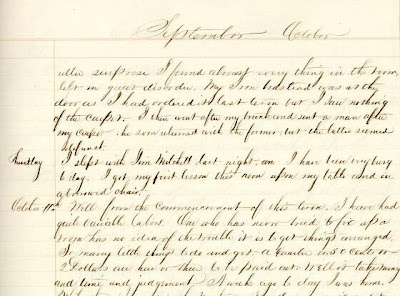 September October
utter surprise I found almost every thing in the room
left in quiet disorder. My Iron bedstead was at the
door as I had ordered it last term but I saw nothing
of the carpet. I then went after my trunk and sent a man after
my carpet he soon returned with the former but the latter seemed
defunct.
Thursday I slept with Tom Mitchell last night, and I have been very busy
to day. I got my first lesson this noon upon my table and in
a borrowed chair.
October 11th Well from the commencement of this term I have had
quite variable labor. One who has never tried to fix up a
room has no idea of the trouble it is to get things arranged.
So many little things to do and get a quarter 50 cents or
2 Dollars are here or there to be paid out. Well it takes money
and time and judgment. A week ago to day I was home.